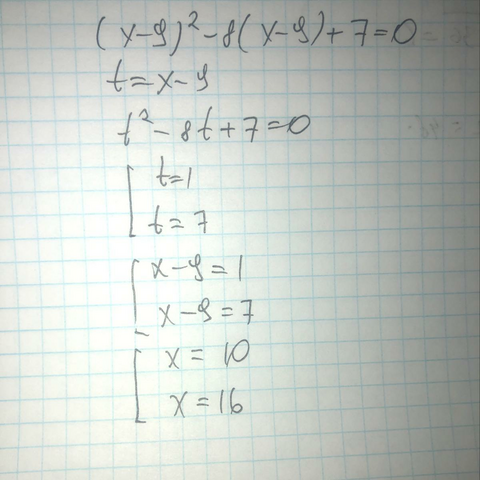 (x-9)²-8(x-9)+7=0
t=x-9
t²-8t+7=0
[ t=1
t=7
[ x-9=1
x-9=7
[ x=10
x=16